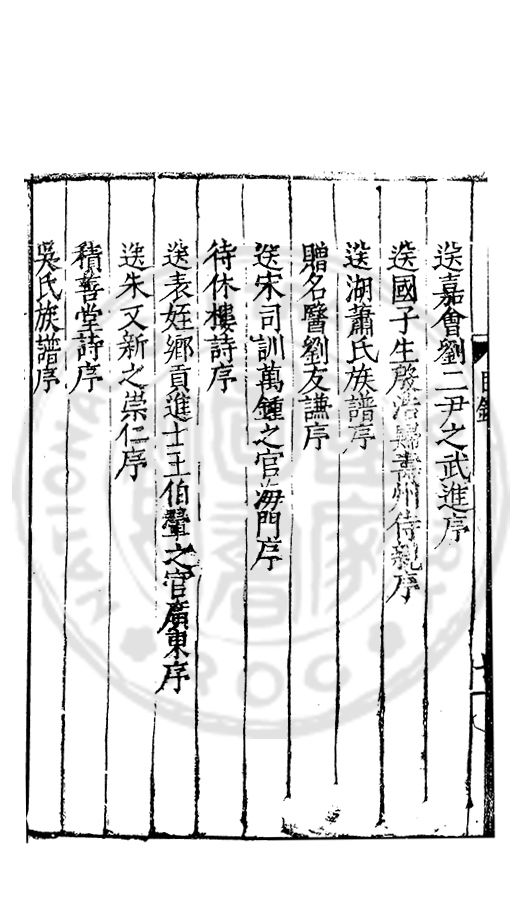 目錄
送嘉會劉二尹之武進序
送國子生殷浩歸壽州侍親序
送湖蕭氏族譜序
贈名醫劉友謙序
送宋司訓萬鍾之官海門序
待休樓詩序
送表姪鄉貢進士王伯鞏之官廣東序
送朱文新之崇仁序
積善堂詩序
吳氏族譜序